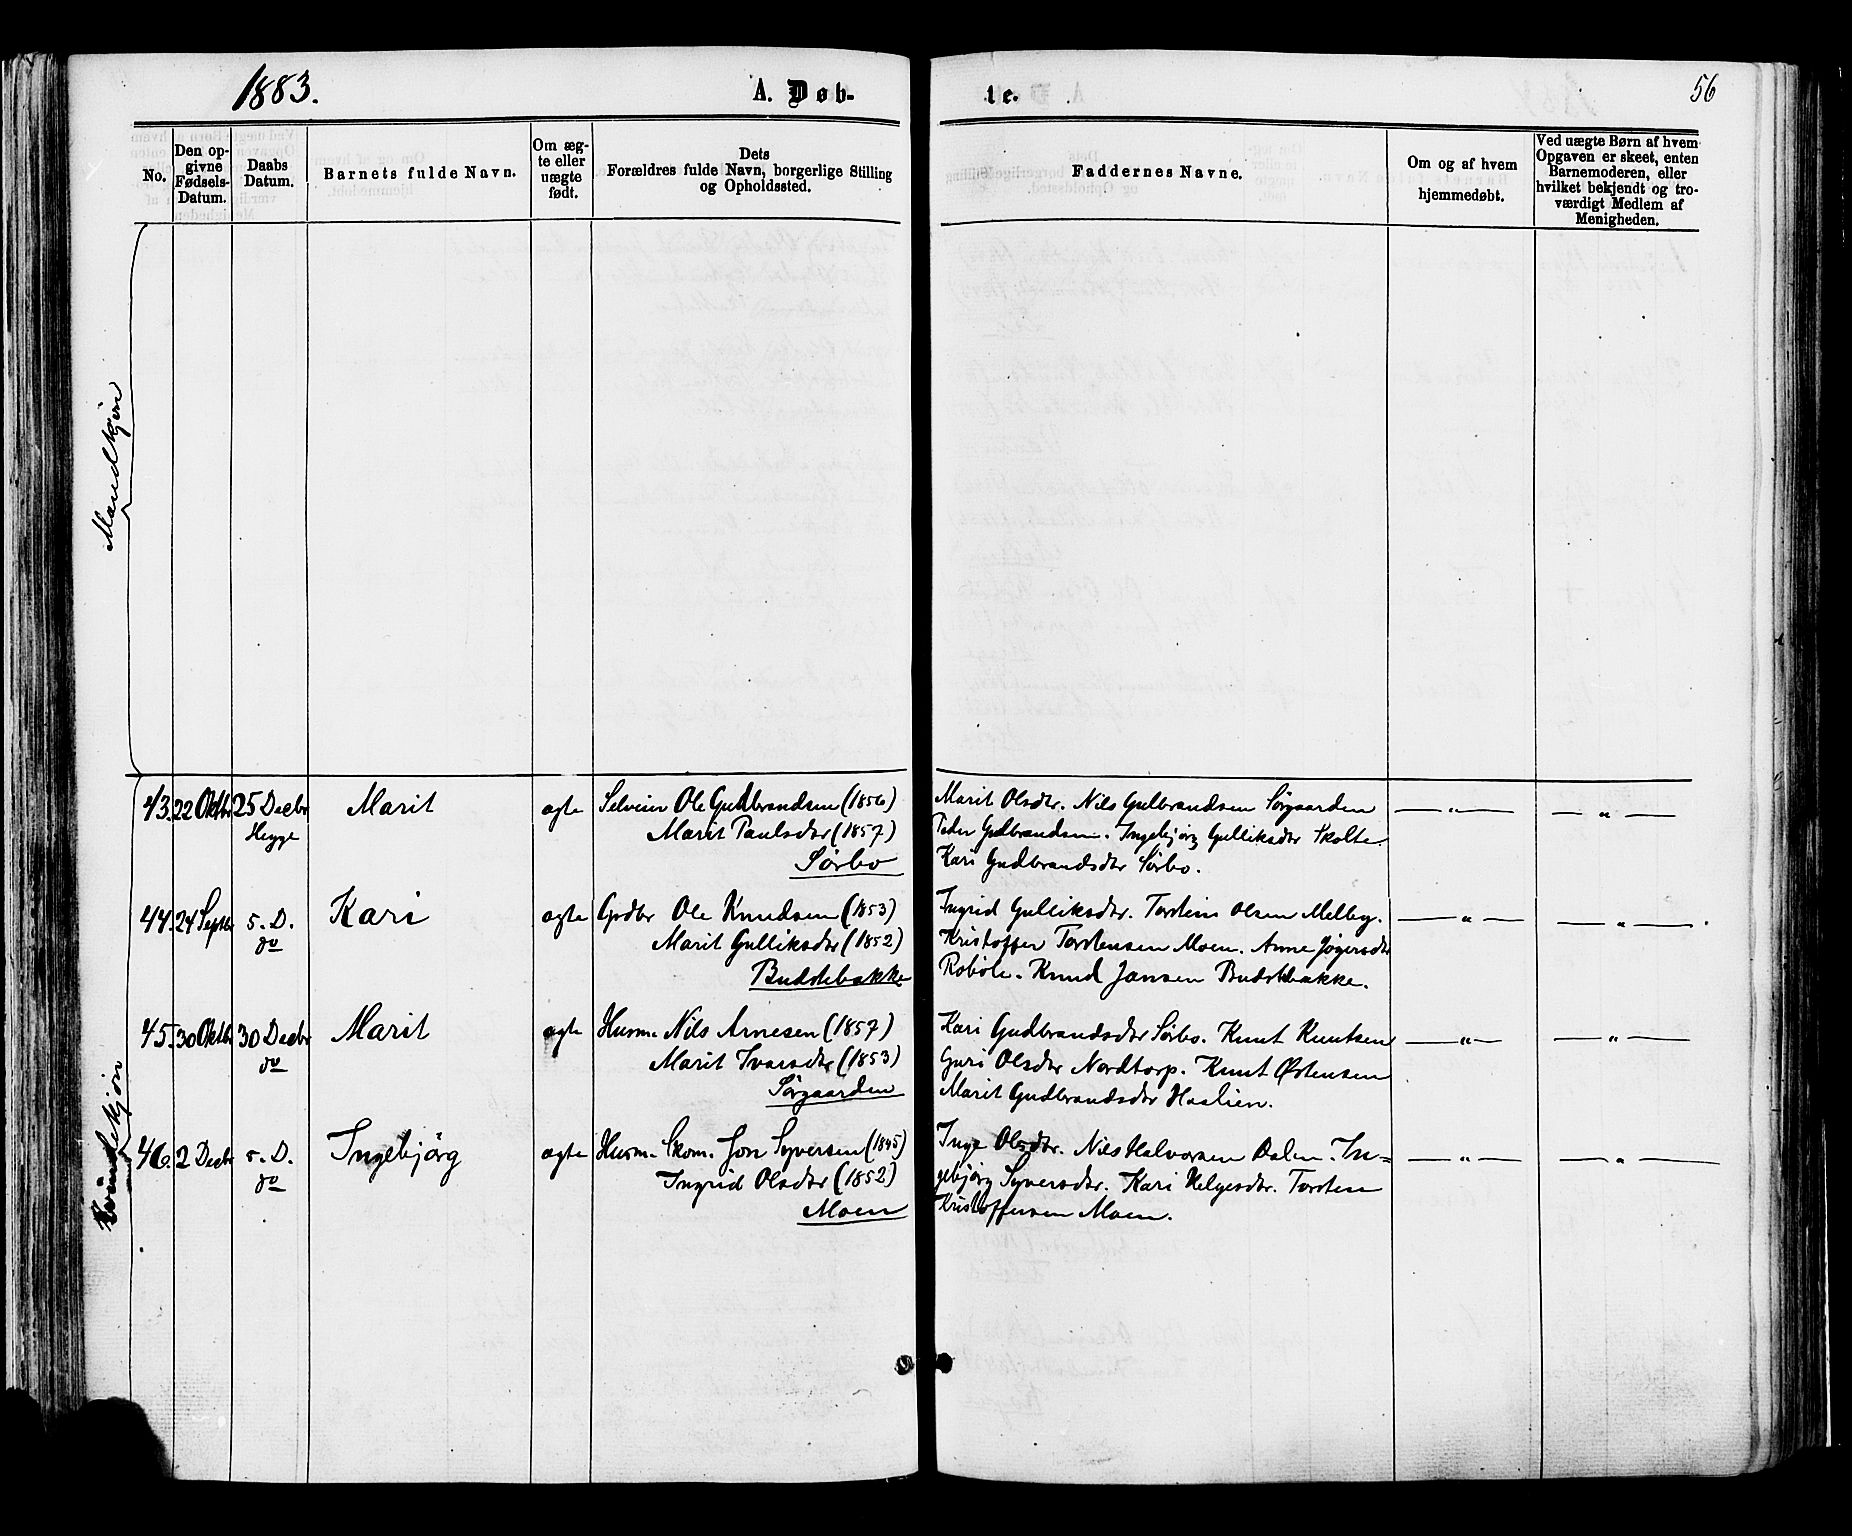 1883.
A. Døb-
te.
56
No.
Den op-
givne
Fødsels-
Datum.
Daabs
Datum.
Barnets fulde Navn.
Om æg-
te eller
uægte
født.
Dets
Forældres fulde Navn, borgerlige Stilling
og Opholdssted.
Faddernes Navne.
Om og af hvem
hjemmedøbt.
Ved uægte Børn af hvem
Opgaven er skeet, enten
Barnemoderen, eller
hvilket bekjendt og tro-
værdigt Medlem af
Menigheden.
Mandkjøn
Kvindekjøn
43. 22 Oktbr 25 Decbr Marit ægte Selveier Ole Gudbrandsen (1856)
Hegge Marit Paulsdtr (1857)
Sørbo
Marit Olsdtr. Nils Gulbrandsen Sørgaarden — " — — " —
Peder Gudbrandsen. Ingebjørg Gulliksdtr Skolte.
Kari Gudbrandsdtr Sørbo.
44. 24 Septbr s. D. Kari ægte Grdbr Ole Knudsen (1853)
do Marit Gulliksdtr (1852)
Budstebakke
Ingrid Gulliksdtr. Torstein Olsen Melby. — " — — " —
Kristoffer Torstensen Moen. Anne
Robøle. Knud Jansen Budstebakke.
45. 30 Oktbr 30 Decbr Marit ægte Husm. Nils Arnesen (1857)
do Marit Ivarsdtr (1853)
Sørgaarden
Kari Gudbrandsdtr Sørbo. Knut Knutsen — " — — " —
Guri Olsdtr Nordtorp. Knut Østensen
Marit Gudbrandsdtr Haslien.
46. 2 Decbr s. D. Ingebjörg ægte Husm. Skom. Jon Syversen (1845)
do Ingrid Olsdtr (1852)
Moen
Inge Olsdtr. Nils Halvorsen Dalen. In= — " — — " —
gebjørg Syversdtr. Kari Helgesdtr. Torsten
Kristoffersen Moen.